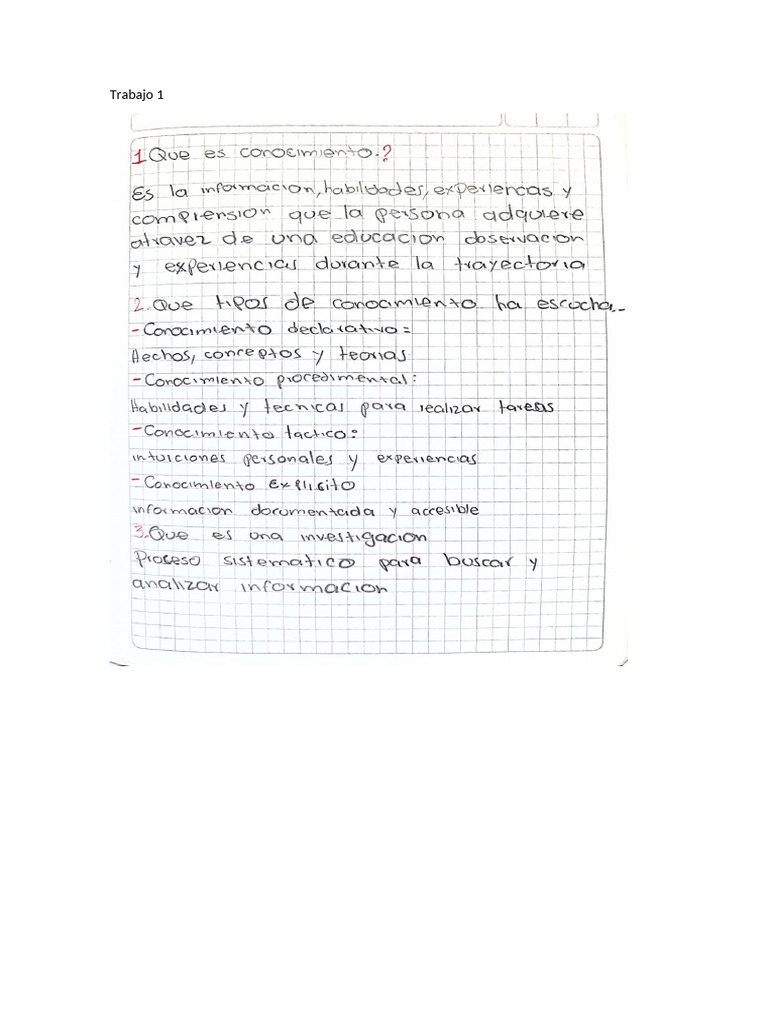 Trabajo 1
1.Que es conocimiento.?
Es la informacion, habilidades, experiencas y
comprension que la persona adquiere
atravez de una educacion observacion
y experiencias durante la trayectoria
2.Que tipos de conocimiento ha escucha..
- Conocimiento declarativo:
Hechos, conceptos y teorias
- Conocimiento procedimental:
Habilidades y tecnicas para realizar tareas
- Conocimiento tactico:
intuiciones personales y experiencias
- Conocimiento Explisito
informacion documentada y accesible
3.Que es una investigacion
Proceso sistematico para buscar y
analizar informacion